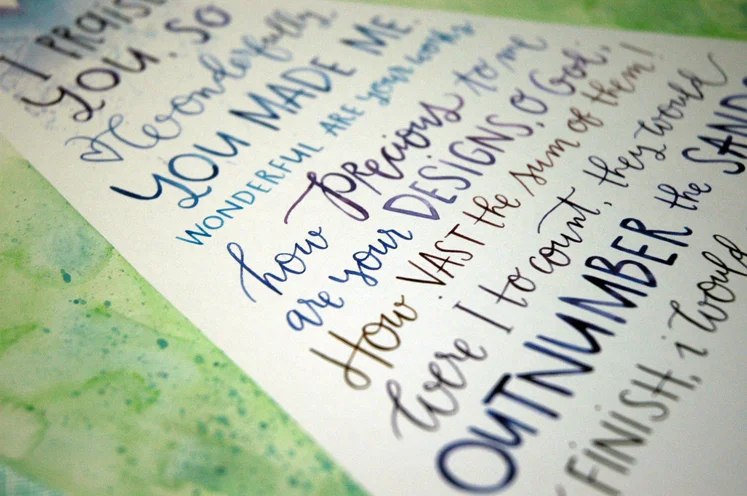 I PRAISE
YOU. SO
Wonderfully
YOU MADE ME.
WONDERFUL ARE your works
how Precious to me
are your DESIGNS, O God;
How VAST the sum of them!
Were I to count, they would
OUTNUMBER the SAND
FINISH, i would